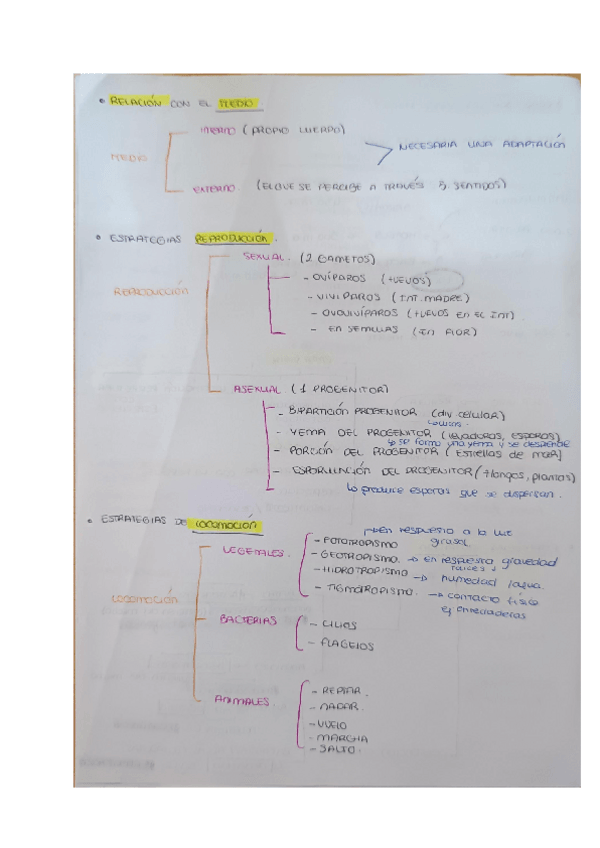 • RELACIÓN CON EL MEDIO
INTERNO (PROPIO CUERPO)
NECESARIA UNA ADAPTACIÓN
MEDIO
EXTERNO (EL QUE SE PERCIBE A TRAVÉS 5 SENTIDOS)
• ESTRATEGIAS REPRODUCCIÓN.
SEXUAL. (2 GAMETOS)
- OVÍPAROS (HUEVOS)
REPRODUCCIÓN
- VIVÍPAROS (INT. MADRE)
- OVOVIVÍPAROS (HUEVOS EN EL INT).
- EN SEMILLAS (EN FLOR)
ASEXUAL (1 PROGENITOR)
- BIPARTICIÓN PROGENITOR (div. celular)
- YEMA DEL PROGENITOR (levaduras, ESPOROS)
↳ se forma una yema y se desprende
- PORCIÓN DEL PROGENITOR (Estrellas de mar)
- ESPORULACIÓN DEL PROGENITOR (Hongos, plantas)
↳ produce esporas que se dispersan.
• ESTRATEGIAS DE LOCOMOCIÓN
→ en respuesta a la luz
VEGETALES.
- FOTOTROPISMO girasol.
- GEOTROPISMO. → en respuesta gravedad
raíces ↓
- HIDROTROPISMO → humedad /agua.
- TIGMOTROPISMO. → contacto físico
ej enredaderas
LOCOMOCIÓN
BACTERIAS
- CILIOS
- FLAGELOS
ANIMALES.
- REPTAR.
- NADAR.
- VUELO
- MARCHA
- SALTO.